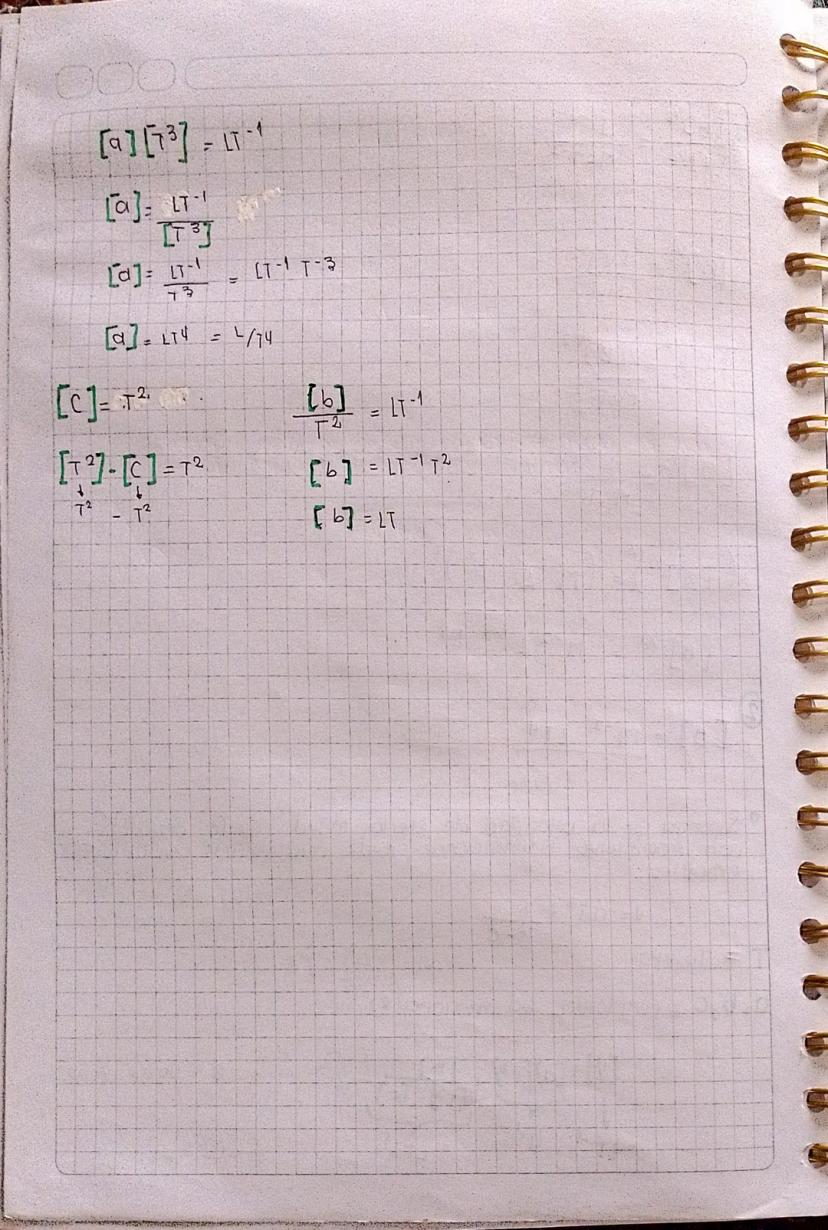 [a][T³] = LT⁻¹
[a] = LT⁻¹ / [T³]
[a] = LT⁻¹ / T³ = LT⁻¹ T⁻³
[a] = LT4 = L/T4
[C] = T²
[T²] - [C] = T²
↓ ↓
T² - T²
[b] / T² = LT⁻¹
[b] = LT⁻¹ T²
[b] = LT